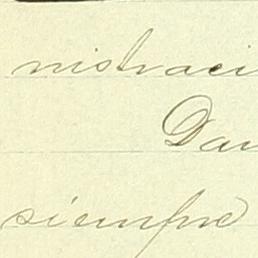 nistraci
Dan
siempre